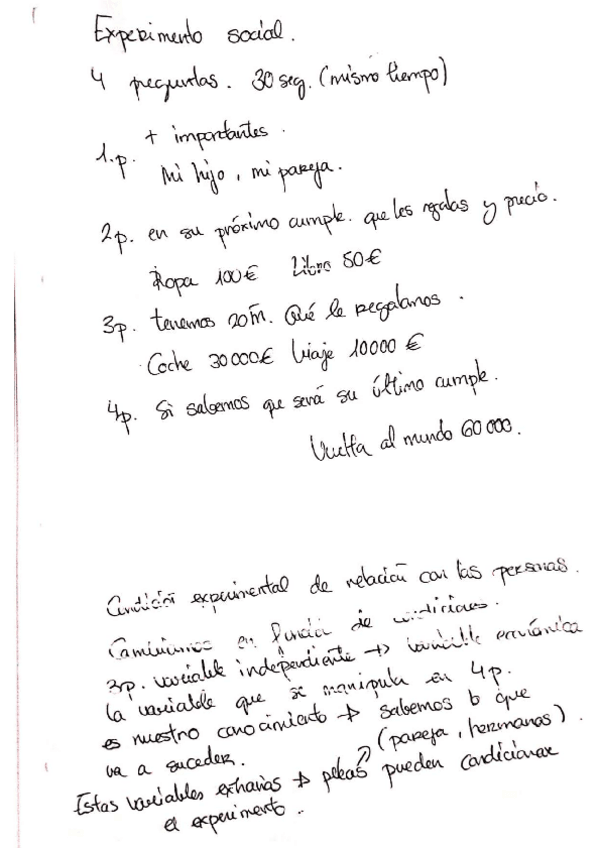 Experimento social.
4 preguntas. 30 seg. (mismo tiempo)
1.p. + importantes.
Mi hijo, mi pareja.
2p. en su próximo cumple. que les regalas y precio.
Ropa 100€ Libro 50€
3p. tenemos 20 m. Qué le regalamos.
Coche 30000€ Viaje 10000 €
4p. Si sabemos que será su último cumple.
Vuelta al mundo 60 000.
Condición experimental de relación con las personas.
Cambiamos en función de condiciones.
3p. variable independiente → variable económica
la variable que se manipula en 4p.
es nuestro conocimiento → sabemos lo que
va a suceder.
(pareja, hermanos).
Estas variables extrañas → peleas pueden condicionar
el experimento.